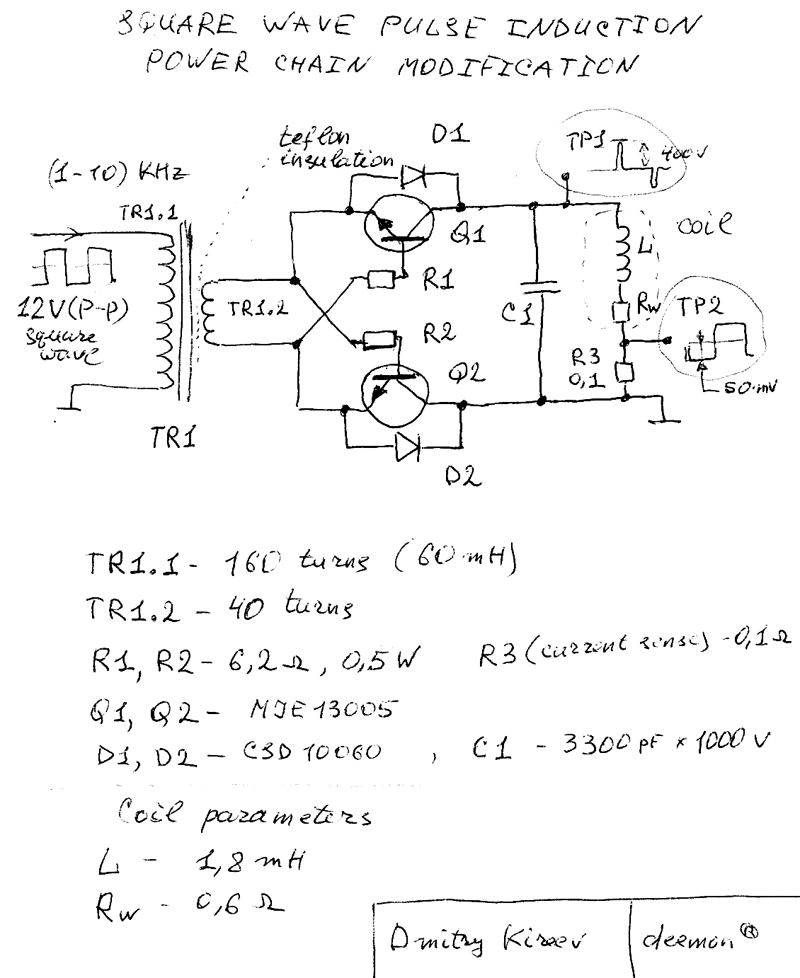 SQUARE WAVE PULSE INDUCTION
POWER CHAIN MODIFICATION
teflon
insulation
D1
TP1
400V
(1-10) KHz
TR1.1
Q1
coil
L
12V(P-P)
square
wave
TR1.2
R1
C1
Rw
TP2
R2
R3
0,1
Q2
50 mV
TR1
D2
TR1.1 - 160 turns (60 mH)
TR1.2 - 40 turns
R1, R2 - 6,2Ω, 0,5W R3 (current sense) - 0,1Ω
Q1, Q2 - MJE13005
D1, D2 - C3D10060, C1 - 3300 pF x 1000V
Coil parameters
L - 1,8 mH
Rw - 0,6 Ω
Dmitry Kireev deemon®